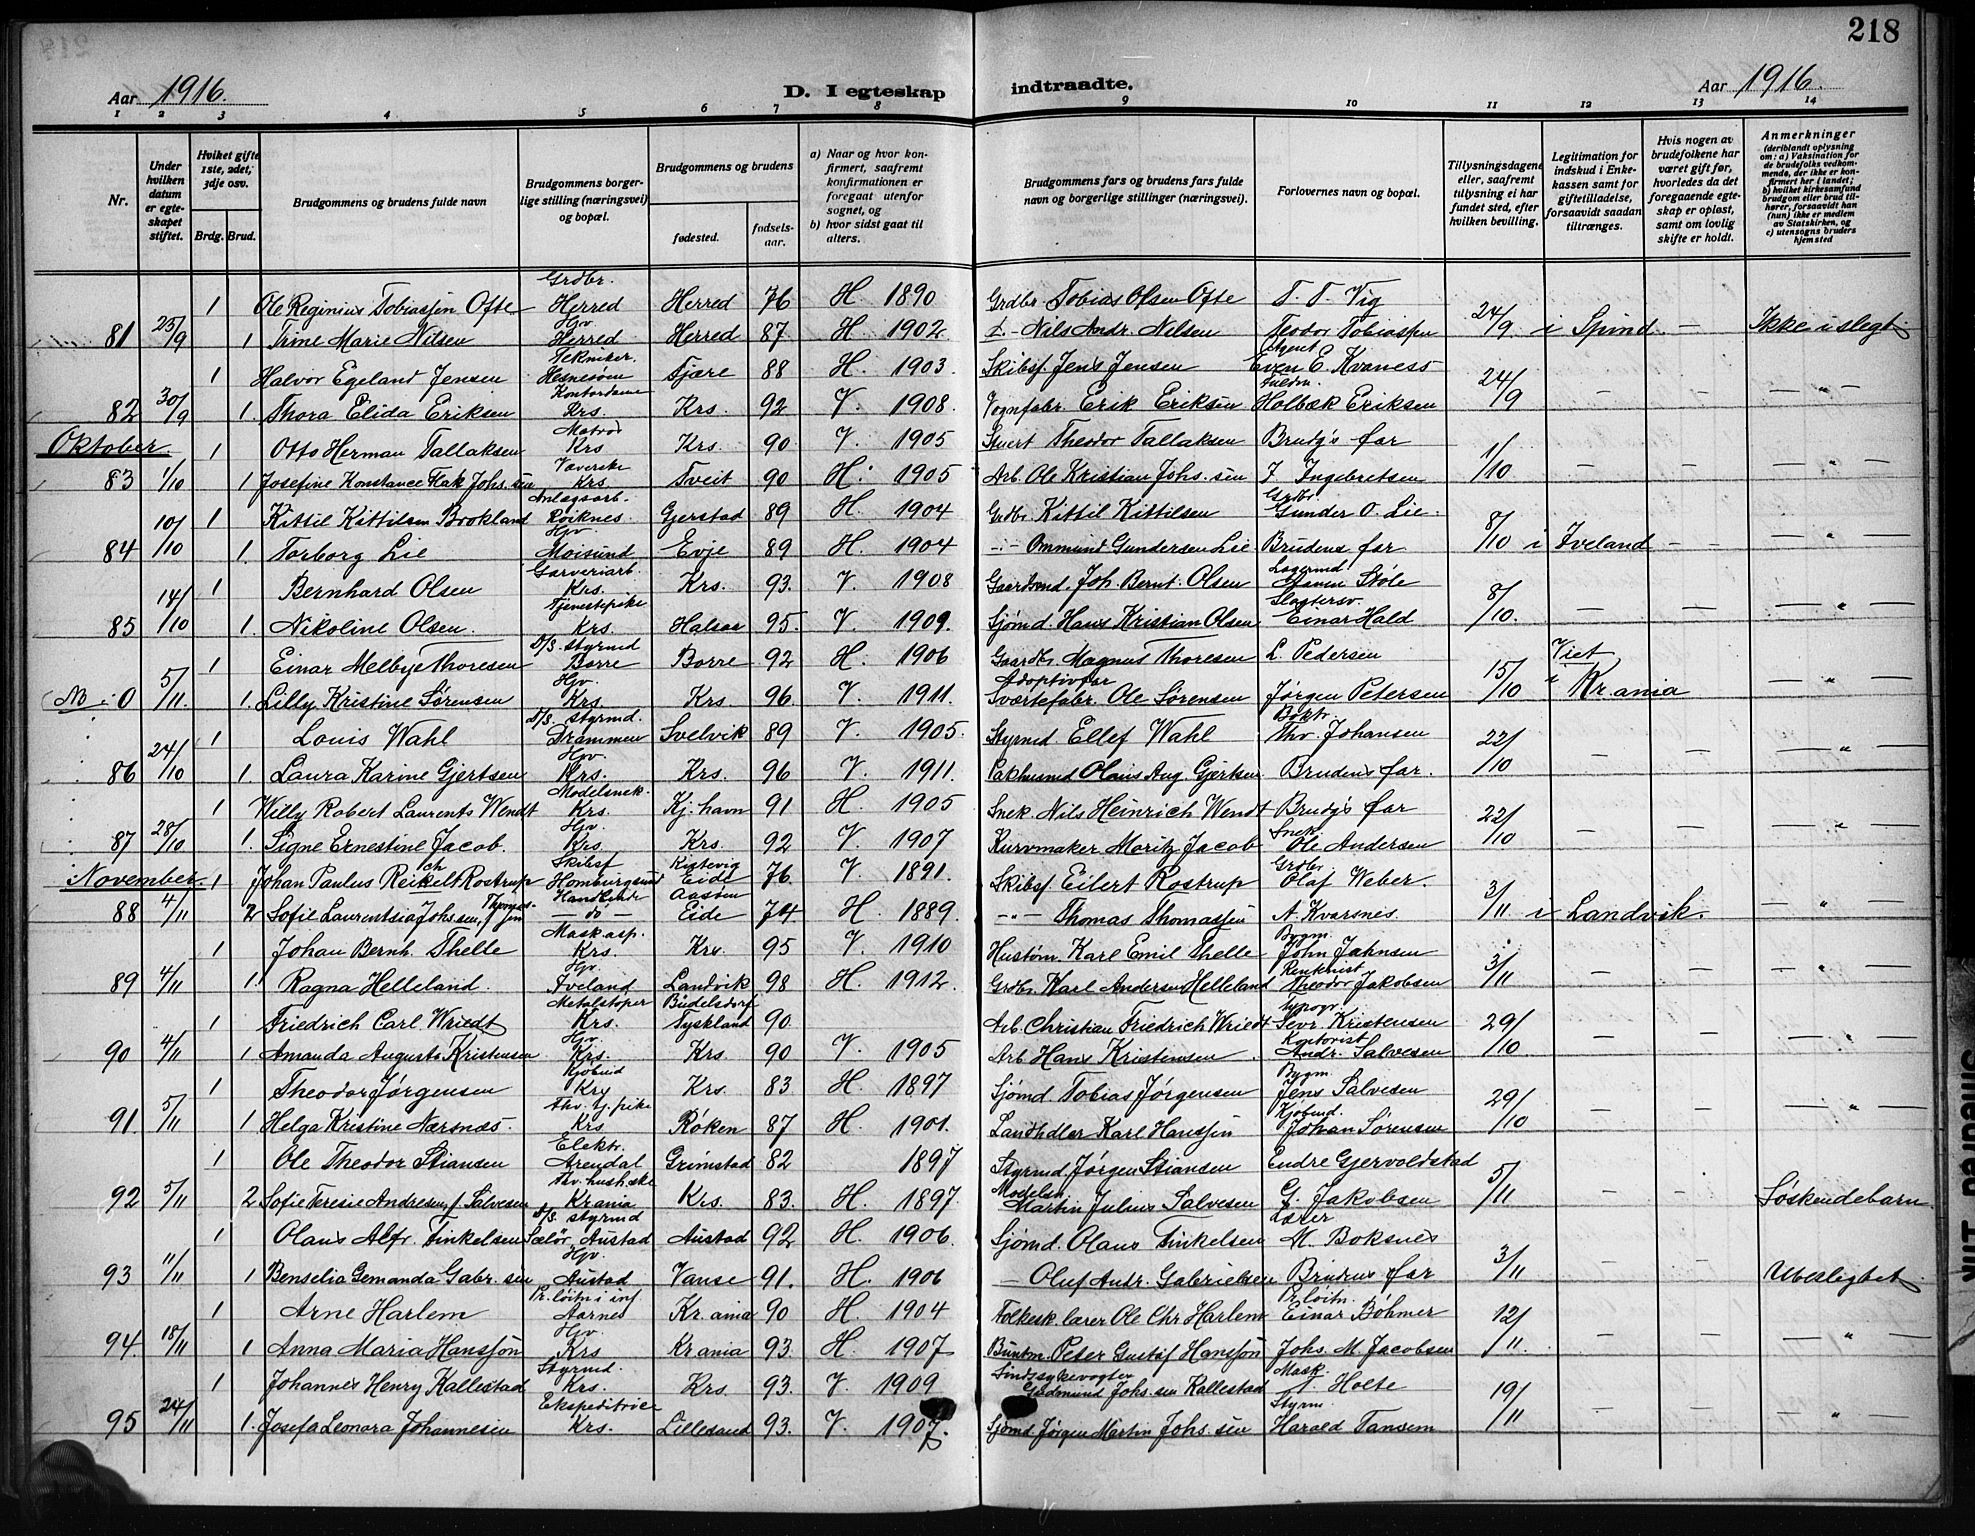 218
Aar 1916. D. I egteskap indtraadte. Aar 1916.
1 2 3 4 5 6 7 8 9 10 11 12 13 14
Nr.
Under hvilken datum er egteskapet stiftet.
Hviket gifte 1ste, 2det, 3dje osv.
Brdg. Brud.
Brudgommens og brudens fulde navn
Brudgommens borgerlige stilling (næringsvei) og bopæl.
Brudgommens og brudens
fødested. fødselsaar.
a) Naar og hvor konfirmert, saafremt konfirmationen er foregaat utenfor sognet, og
b) hvor sidst gaat til alters.
Brudgommens fars og brudens fars fulde navn og borgerlige stillinger (næringsvei).
Forlovernes navn og bopæl.
Tillysningsdagene eller, saafremt tillysning ei har fundet sted, efter hvilken bevilling.
Legitimation for indskud i Enkekassen samt for giftetilladelse, forsaavidt saadan tiltrænges.
Hvis nogen av brudefolkene har været gift før, hvorledes da det foregaaende egteskap er opløst, samt om lovlig skifte er holdt.
Anmerkninger (deriblandt oplysning om: a) Vaksination for de brudefolks vedkommende, der ikke er konfirmert her i landet; b) hvilket kirkesamfund brudgom eller brud tilhører, forsaavidt han (hun) ikke er medlem av Statskirken, og c) utensogns bruders hjemsted
1 Ole Reginius Tobiassen Ofte Grdbr. Herred Herred 76 H 1890 Grdbr Tobias Olsen Ofte T. T. Vig
81 25/9 1 Trine Marie Nilsen Hjv Herred Herred 87 H 1902 Nils Andr. Nilsen Teodor Tobiassen 24/9 i Spind — Ikke i slegt
1 Halvor Egeland Jensen Tekniker. Hesnesøen Fjære 88 H 1903 Skibsf. Jens Jensen Agent Even E. Kvaness
82 30/9 1. Thora Elida Eriksen Kontordame Krs. Krs. 92 V. 1908. Vognfabr. Erik Eriksen Holbæk Eriksen 24/9 — — — " —
Oktober. 1 Otto Herman Tallaksen Matros Krs Krs. 90 V. 1905 Stuert Theodor Tallaksen Brudg's far
83 1/10 1 Josefine Konstance Flak Johs.sen Væverske Krs. Tveit 90 H. 1905 Arb. Ole Kristian Johs.sen J. Ingebretsen 1/10 — — — " —
1 Kittil Kittilsen Brokland Anlegsarb. Røiknes. Gjerstad 89 H. 1904 Grdbr. Kittil Kittilsen Grdbr. Gunder O. Lie.
84 10/10 1. Torborg Lie Hjv Moisund Evje 89 H. 1904 Ommund Gundersen Lie Brudens far 8/10 i Iveland — —
1 Bernhard Olsen Garveriarb. Krs. Krs. 93. V. 1908 Gaardsmd. Joh. Bernt. Olsen Lagermd Støle
85 14/10 1. Nikoline Olsen. Tjenestepike Krs. Halsaa 95. V. 1909. Sjømd. Hans Kristian Olsen Slagtersv. Einar Hald 8/10. — — — " —
1 Einar Melbye Thoresen D/S. styrmd Borre Borre 92 H. 1906 Gaardbr Magnus Thoresen L. Pedersen
NB 0 5/11. 1. Lilly Kristine Sørensen Hjv. Krs. Krs 96 V. 1911. Adoptivfar Sværtefabr. Ole Sørensen Jørgen Petersen 15/10 Viet i Kr.ania — " —
1 Louis Wahl D/S. styrmd. Drammen Svelvik 89 V. 1905. Styrmd. Ellef Wahl Boktr. Thv. Johansen
86 24/10 1 Laura Karine Gjertsen Hjv. Krs. Krs. 96 V. 1911. Pakhusmd Olaus Aug. Gjertsen Brudens far. 22/10 — — — " —
1 Willy Robert Laurents Wendt Modelsnek. Krs. Kj.havn 91 H. 1905 Snek. Nils Heinrich Wendt Brudg's far
87 28/10 1. Signe Ernestine Jacob. Hjv. Krs Krs. 92 V. 1907 Kurvmaker Moritz Jacob Snek. Ole Andersen 22/10 — — — " —
November. 1 Johan Paulus Reikelt Rostrup Skibsf Homburgsund Eide 76. V. 1891. Skibsf. Eilert Rostrup Grdbr Olaf Weber.
88 4/11 2 Sofie Laurentsia Johs.sen, f Thomassen — do — Eide 74 H. 1889. Thomas Thomassen A. Kvarsnes. 3/11 i Landvik. — " —
1 Johan Bernh. Thelle Mask.asp. Krs. Krs. 95 V. 1910 Hustøm. Karl Emil Thelle Bygm. John Jahnsen
89 4/11 1. Ragna Helleland. Hjv. Iveland Landvik 98 H. 1912. Grdbr. Karl Andersen Helleland Theodor Jakobsen 3/11 — — — " —
1 Friedrich Carl Wriedt Metalstøper Krs. Büdelsdorf Tyskland 90 Arb. Christian Friedrich Wriedt Typogr. Sevr. Kristensen
90 4/11 1 Amanda Augusta Kristensen Hjv. Krs. Krs. 90 V. 1905 Arb Hans Kristensen Kontorist Andr. Salvesen 29/10 — — — " —
1 Theodor Jørgensen Kjøbmd Krs Krs. 83 H 1897 Sjømd. Tobias Jørgensen Bygm. Jens Salvesen
91. 5/11 1 Helga Kristine Næsnæs. Krs Røken 87 H. 1901. Landhdler Karl Hanssen Kjøbmd. Johan Sørensen 29/10 — — — " —
1 Ole Theodor Stiansen Elektr. Arendal Grimstad 82 1897 Styrmd Jørgen Stiansen Endre Gjervoldstad
92 5/11 2 Sofie Teresie Andresen, f. Salvesen Krania Krs. 83. H. 1897. Modelsn Martin Julius Salvesen G. Jakobsen 5/11 — — Søskendebarn
1 Olaus Alfr. Tinkelsen D/S. styrmd Sælør, Austad Austad 92 H. 1906. Sjømd. Olaus Tinkelsen Lærer M. Boksnes
93 11/11 1 Benselia Gemanda Gabr.sen Hjv. Austad Vanse 91. H. 1906 — Oluf Andr. Gabrielsen Brudens far 3/11 — — Ubeslegtet
1 Arne Harlem Pr.løitn i inf. Aarnes Kr.ania 90 H. 1904 Folkesk.lærer Ole Chr Harlem Pr.løitn. Einar Bøhmer
94. 18/11 1 Anna Maria Hanssøn Hjv. Krs Krania 93. H. 1907 Buntm. Peter Gustaf Hanssøn Johs. M. Jacobsen 12/11. — — — " —
1 Johannes Henry Kallestad Styrmd. Krs. Krs. 93. V. 1909 Sindssykevogter Gudmund Johs.sen Kallestad Mask Holte
95 24/11 1. Josefa Leonora Johannesen Ekspeditrice Krs. Lillesand 93. V. 1907. Sjømd Jørgen Martin Johs.sen Styrm. Harald Tansem 19/11 — — — " —